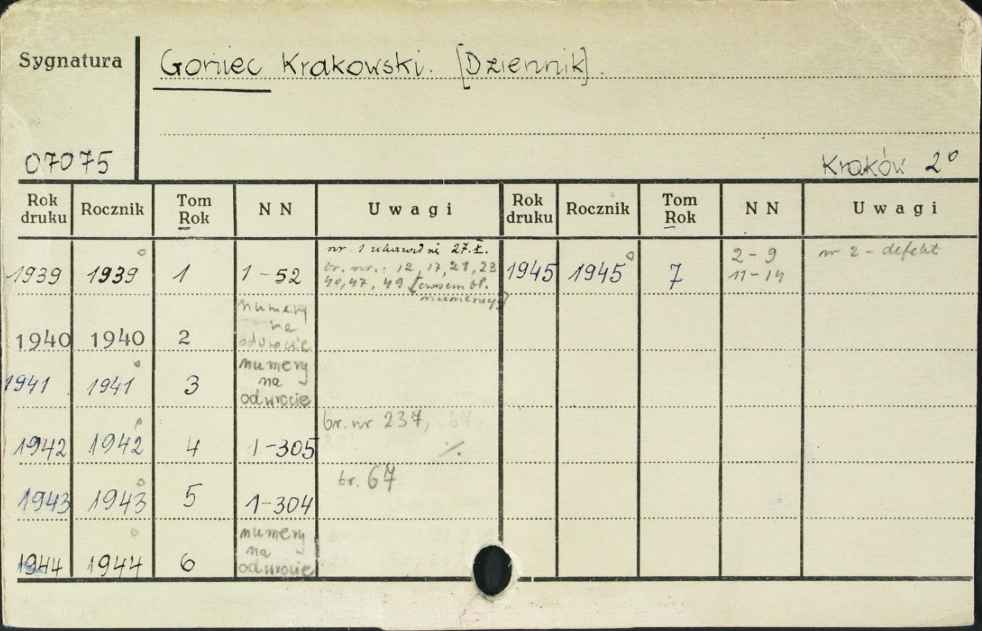 Sygnatura
Goniec Krakowski. [Dziennik].
07075
Kraków 2°
Rok druku Rocznik Tom Rok NN Uwagi Rok druku Rocznik Tom Rok NN Uwagi
1939 1939 1 1-52
nr 1 27.X.
br. nr.: 12, 17, 21, 23
40, 47, 49 [czasem bł.
numeracja]
1945 1945 7
2-9
11-14
nr 2 - defekt
1940 1940 2
numery
na
odwrocie
1941 1941 3
numery
na
odwrocie
1942 1942 4 1-305 br. nr 237,
./.
1943 1943 5 1-304 br. 67
1944 1944 6
numery
na
odwrocie